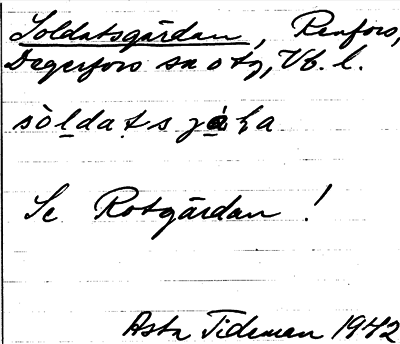 Soldatsgårdan, Renfors,
Degerfors sn o tg, Vb. l.
Se Rotgårdan!
Asta Tideman 1942